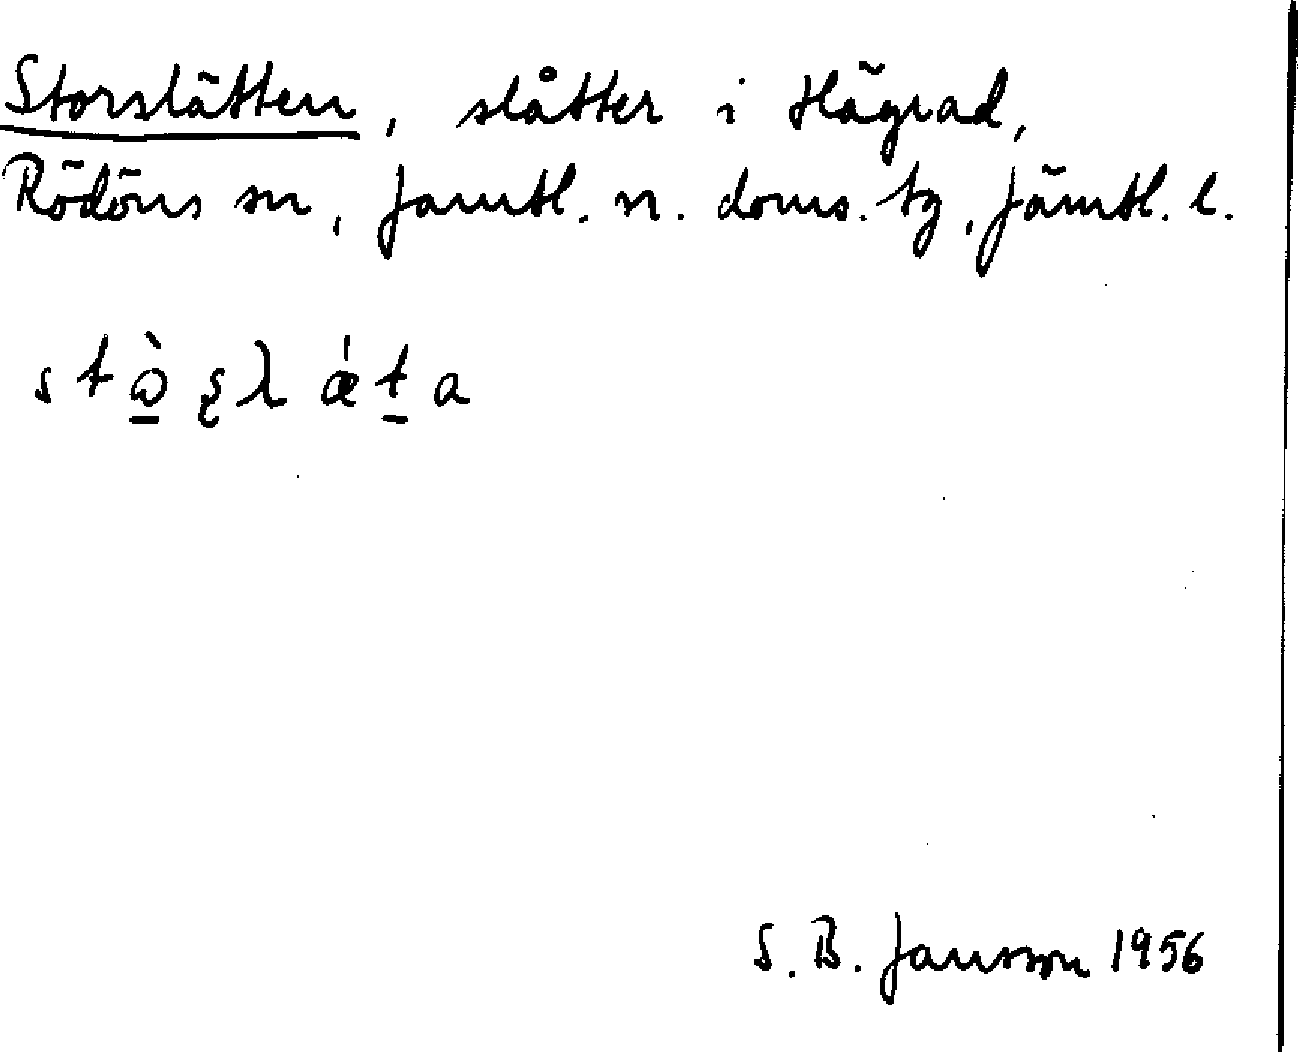 Storslätten, slåtter i Hägrad,
Rödöns sn, Jämtl. n. doms. tg, Jämtl. l.
S. B. Jansson 1956